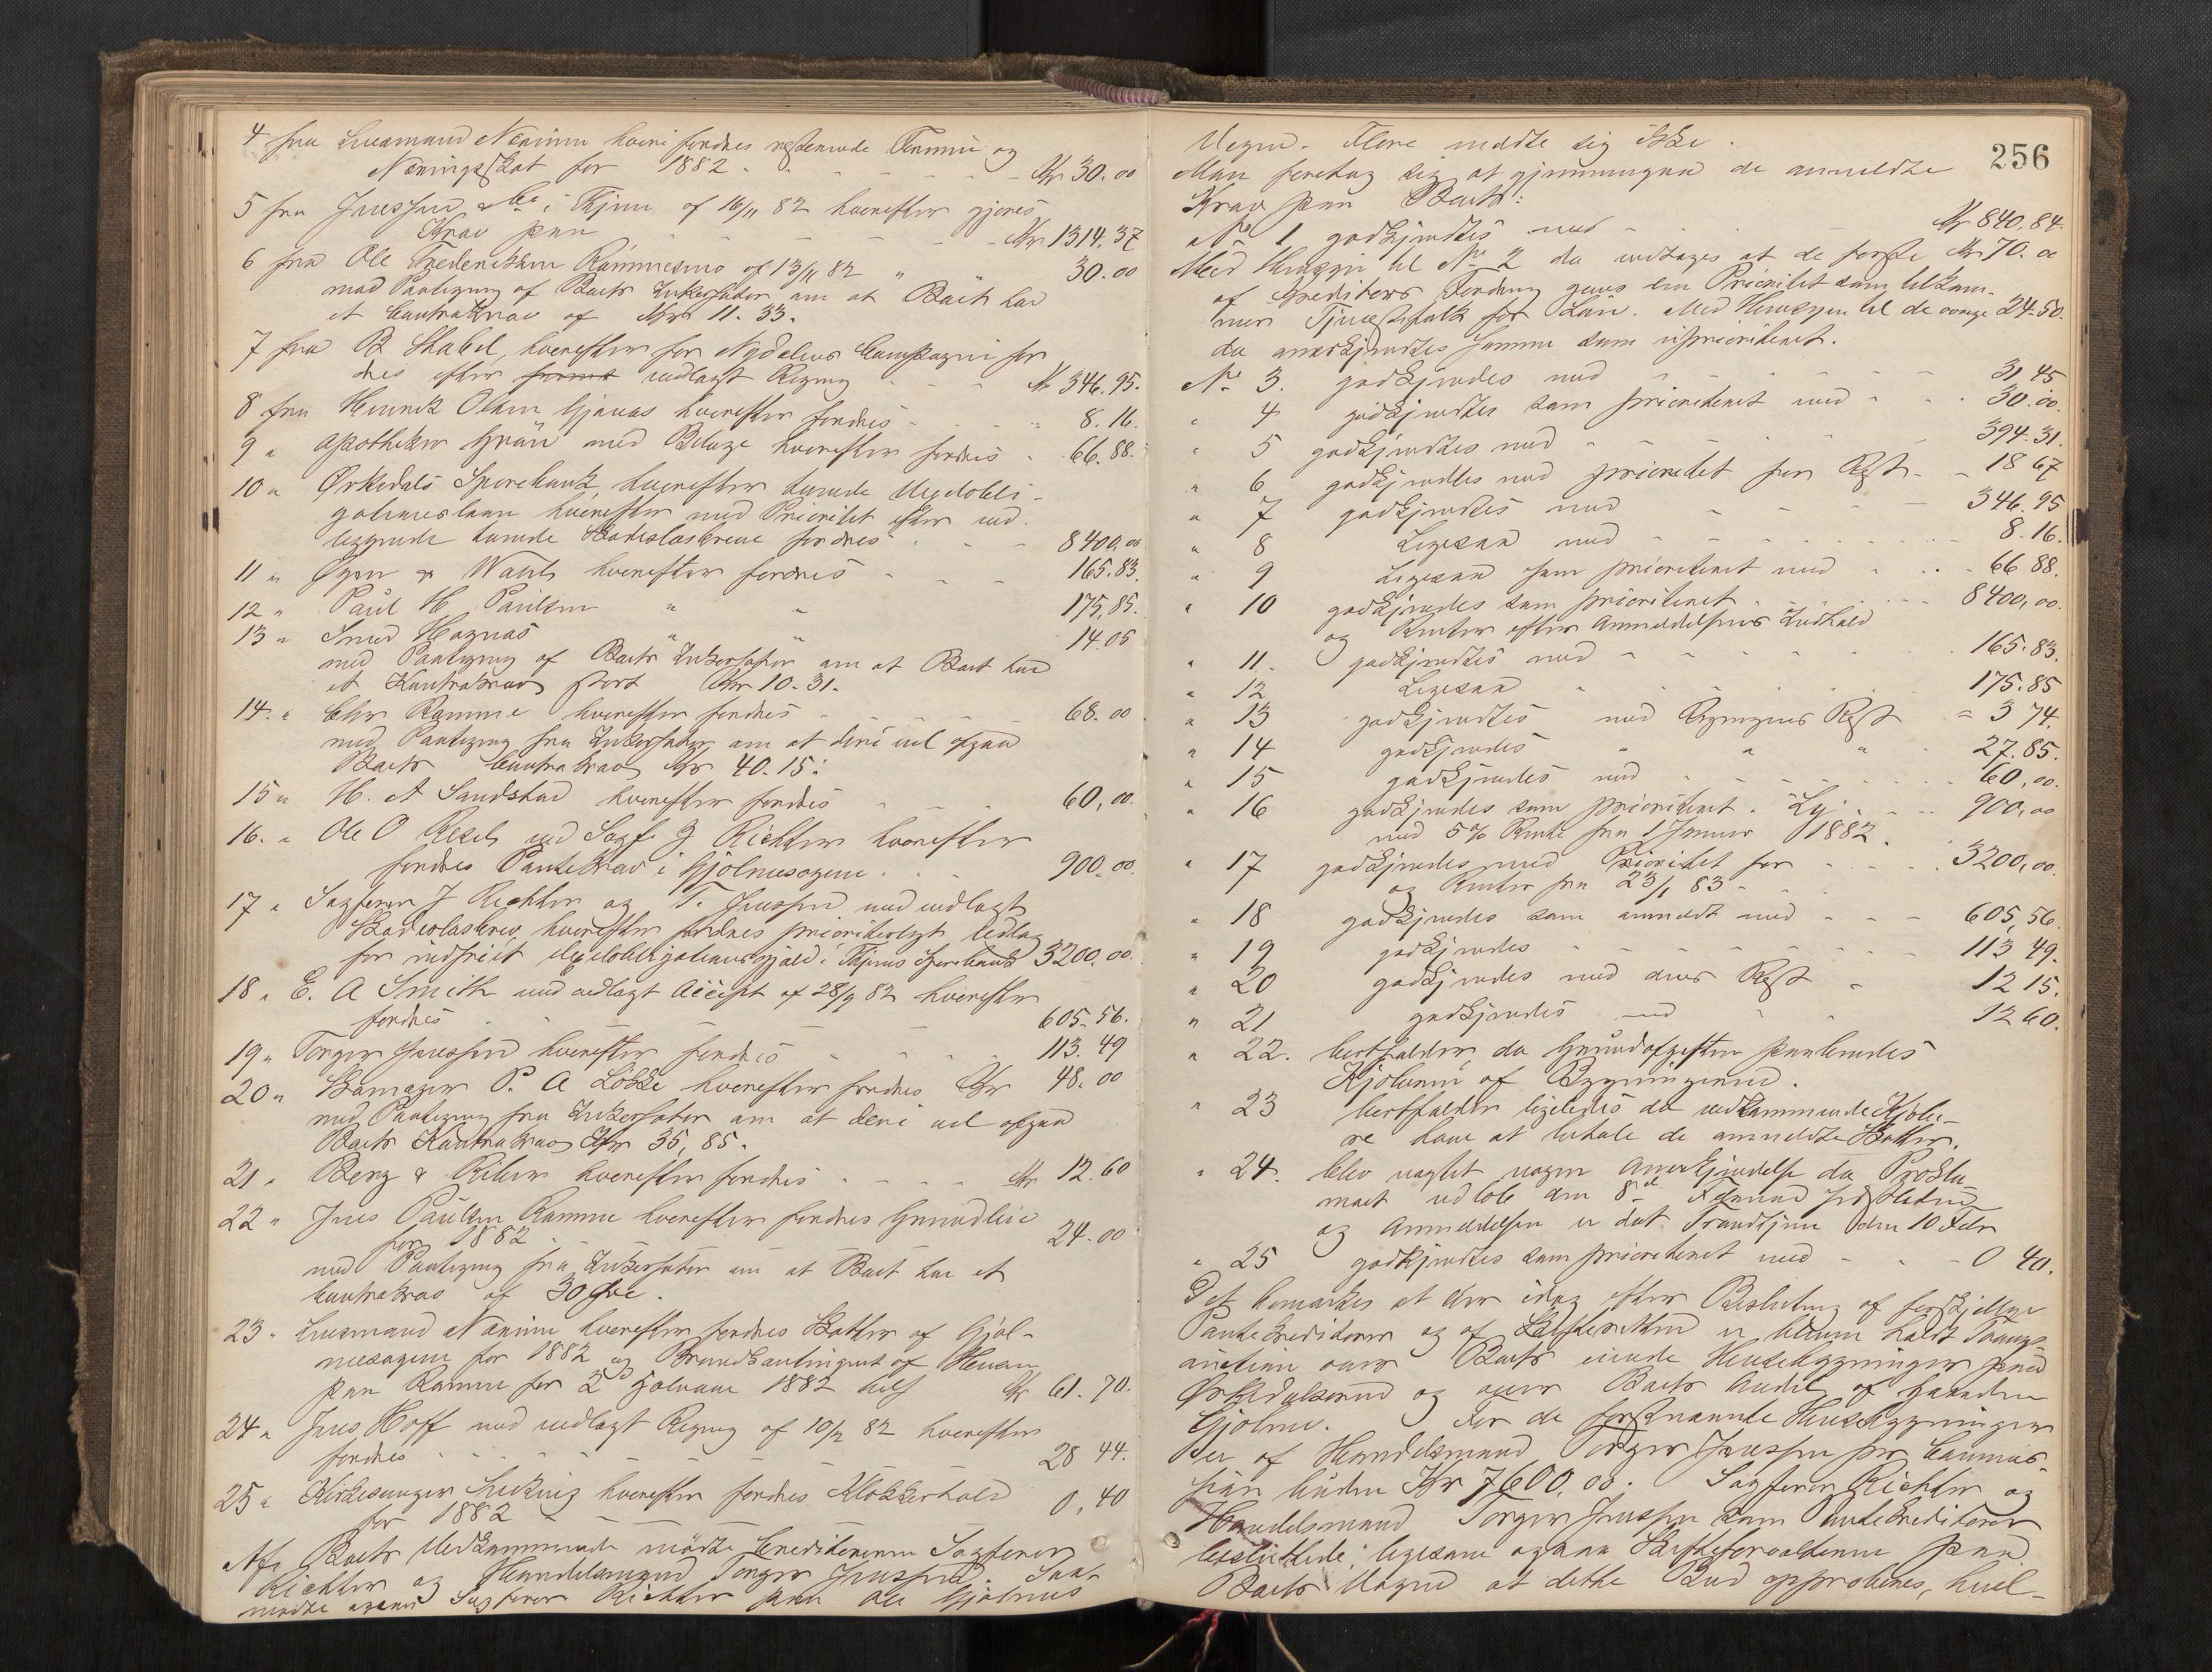 4 fra Lensmand Nærum hvori fordres resterende Termin og
Næringsskat for 1882. - - - - - Kr 30.00
5 fra Jenssen & Co i Thjem af 16/11 82 hvorefter gjøres
Krav paa - - - - - Kr 1314.37
6 fra Ole Frederiksen Rømmesmo af 13/11 82 " " 30.00
med Paategning af Boets Inkassator om at Boet har
et Contrakrav af Kr 11.33.
7 fra B Stabel, hvorefter for Nydalens Compagni for
dres efter vedlagt Regning - - - Kr 346.95.
8 fra Henrik Olsen Gjønas hvorefter fordres - - 8.16.
9 " Apotheker Grøn med Bilage hvorefter fordres - 66.88.
10 " Ørkedals Sparebank, hvorefter tvende Vexelobli-
gationslaan hvorefter med Prioritet efter ved-
liggende tvende Skadesløsbreve fordres - - - 8400.00
11 " Øyen & Wahl hvorefter fordres - - - 165.83.
12 " Paul H Paulsen " " 175,85.
13 " Smed Hognas " " 14.05
med Paategning af Boets Inkassator om at Boet har
et Kontrakrav stort Kr 10.31.
14. " Chr Ramme hvorefter fordres - - - - 68.00
med Paategning fra Inkassator om at deri vil afgaa
Boets Contrakrav Kr 40.15.
15 " H. A Sandstad hvorefter fordres - - - 60,00.
16. " Ole O Resels ved Sagf J Richter hvorefter
fordres Pantekrav i Gjølmesøgene - - - 900.00.
17 " Sagfører J Richter og T. Jenssen med vedlagt
Skadesløsbrev, hvorefter fordres prioriteret Udlæg
for indfriet Vexelobligationsgjæld i Thjems Sparebank 3200.00.
18 " E. A Smith med vedlagt Accept af 28/9 82 hvorefter
fordres - - - - - 605.56.
19 " Torger Jenssen hvorefter fordres - - - - 113.49
20 " Skomager P. A Løkke hvorefter fordres Kr 48.00
med Paategning fra Inkassator om at deri vil afgaa
Boets Kontrakrav Kr 35,85.
21 " Berg & Riber hvorefter fordres - - - - Kr 12.60
22 " Jens Paulsen Ramme hvorefter fordres Grundleie
for 1882 - - - 24.00
med Paategning fra Inkassator om at Boet har et
Contrakrav af 30 Øre.
23 " Lensmand Nærum hvorefter fordres Skatter af Gjøl-
mesøgene for 1882 og Brandkontingent af Husene
paa Ramme for 2det Halvaar 1882 tils Kr 61.70.
24 " Jens Hoff med vedlagt Regning af 10/2 82 hvorefter
fordres - - - - - 28 44.
25 " Kirkesanger hvorefter fordres Klokkertold
for 1882 - - - - 0,40
Af Boets Vedkommende mødte Creditorerne Sagfører
Richter og Handelsmand Torger Jenssen.
mødte Sagfører Richter paa Ole Gjølmes
256
Vegne. Flere meldte sig ikke.
Man foretog sig at gjennemgaa de anmeldte
Krav paa Boet:
No 1 godkjendtes med - - Kr 840,84.
Med Hensyn til No 2 da vedtages at de første Kr 70.00
af Creditors Fordring gives den Prioritet som tilkom-
mer Tjenestefolk for Løn. Med Hensyn til de øvrige 24.50.
da anerkjendtes samme som uprioriteret.
No 3. godkjendes med - - - - - 31 45
" 4 godkjendtes som prioriteret med - - - 30.00.
" 5 godkjendtes med - - - - 394.31.
" 6 godkjendtes med prioritet for Rest - - 18 67
" 7 godkjendtes med - - - - 346.95
" 8 Ligesaa med - - - - - 8.16.
" 9 Ligesaa som prioriteret med - - - 66 88.
" 10 godkjendes som prioriteret - - - - 8400,00.
og Renter efter Anmeldelsens Indhold
" 11. godkjendtes med - - - - - 165.83.
" 12 Ligesaa - - - - 175.85
" 13 godkjendtes med Regningens Rest - 3 74.
" 14 godkjendes " " " 27.85.
" 15 godkjendes med - - - - - 60,00.
" 16 godkjendes som prioriteret - - - 900,00
med 5% Rente fra 1 Januar 1882.
" 17 godkjendes med Prioritet for - - - 3200,00.
og Renter fra 23/1 83 - -
" 18 godkjendes som anmeldt med - - - 605,56.
" 19 godkjendes - - - - - 113 49.
" 20 godkjendes med dens Rest - 12 15.
" 21 godkjendes med - - 12 60.
" 22. bortfalder da Grundafgiften paahviler
Kjøberne af Bygningerne.
" 23 bortfalder ligeledes da vedkommende Kjøbe-
re have at betale de anmeldte Skatter.
" 24. blev negtet nogen Anerkjendelse da Prokla-
maet udløb den 8de Februar sidstleden
og Anmeldelsen er dat. Trondhjem den 10 Febr
" 25 godkjendtes som prioriteret med - - - 0 40.
Det bemærkes at der idag efter Beslutning af forskjellige
Pantekreditorer og af Skifteretten er bleven holdt Tvangs-
auktion over Boets eiende Husebygninger paa
Ørkedalsøren og over Boets Andel af Gaarden
Gjølme. For de førstnævnte Husebygninger
er af Handelsmand Torger Jenssen pr Commis-
sion buden Kr 7600,00. Sagfører Richter og
Handelsmand Torger Jenssen som Pantekreditorer
besluttede, ligesom ogsaa Skifteforvalteren paa
Boets Vegne at dette Bud approberes, hvil-